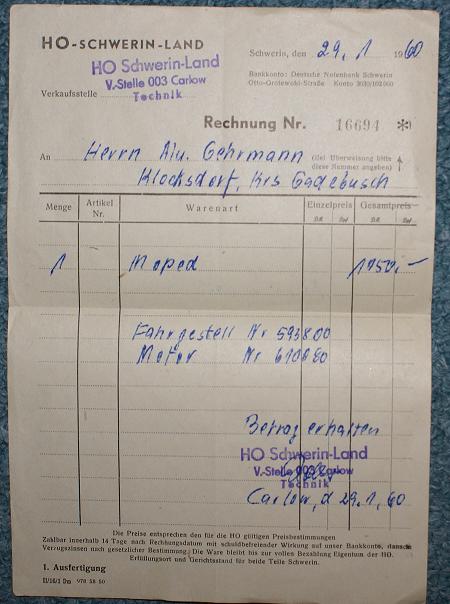 HO-SCHWERIN-LAND
Schwerin, den 29. 1 1960
HO Schwerin-Land
V.-Stelle 003 Carlow
Technik
Bankkonto: Deutsche Notenbank Schwerin
Otto-Grotewohl-Straße Konto
Verkaufsstelle
Rechnung Nr. 16694 *
An Herrn Gehrmann (Bei Überweisung bitte
diese Nummer angeben)
Klocksdorf, Krs Gadebusch
Menge Artikel Nr. Warenart Einzelpreis Gesamtpreis
DM Dpf DM Dpf
1 Moped 1150,-
Fahrgestell Nr 593800
Motor Nr
Betrag erhalten
HO Schwerin-Land
V.-Stelle 003 Carlow
Technik
Carlow, d 29.1.60
Die Preise entsprechen den für die HO gültigen Preisbestimmungen
Zahlbar innerhalb 14 Tage nach Rechnungsdatum mit schuldbefreiender Wirkung auf unser Bankkonto, danach
Verzugszinsen nach gesetzlicher Bestimmung. Die Ware bleibt bis zur vollen Bezahlung Eigentum der HO.
Erfüllungsort und Gerichtsstand für beide Teile Schwerin.
1. Ausfertigung
II/16/1 Dm 978 58 50